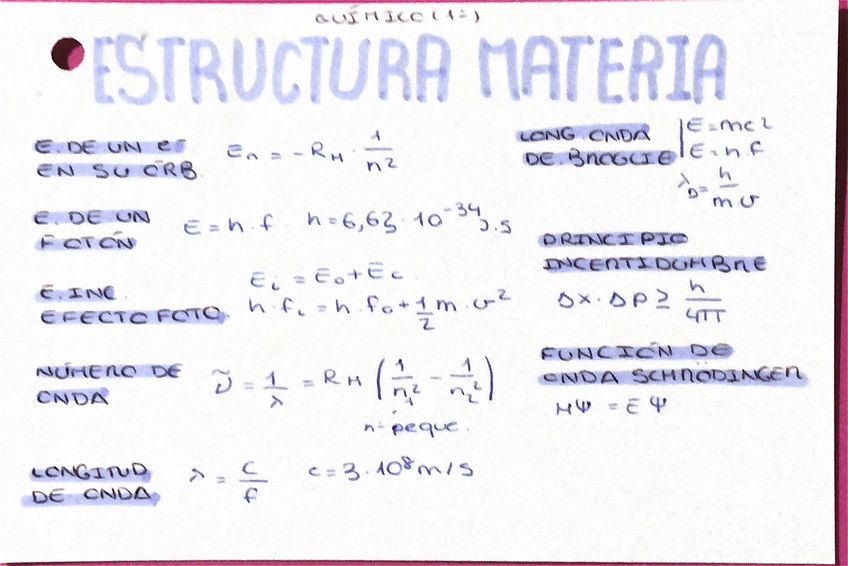 QUÍMICO (1º)
ESTRUCTURA MATERIA
E. DE UN e⁻
EN SU ORB.
Eₙ = -R_H · 1/n²
E. DE UN
FOTÓN
E = h · f   h = 6,63 · 10⁻³⁴ J·s
E. INC.
EFECTO FOTO.
Eᵢ = E₀ + Ec
h · fᵢ = h · f₀ + 1/2 m · v²
NÚMERO DE
ONDA
ṽ = 1/λ = R_H (1/n₁² - 1/n₂²)
n = peque.
LONGITUD
DE ONDA
λ = c/f   c = 3 · 10⁸ m/s
LONG. ONDA
DE BROGLIE
E = mc²
E = h · f
λ_D = h/mv
PRINCIPIO
INCERTIDUMBRE
Δx · Δp ≥ h/4π
FUNCIÓN DE
ONDA SCHRÖDINGER
HΨ = EΨ